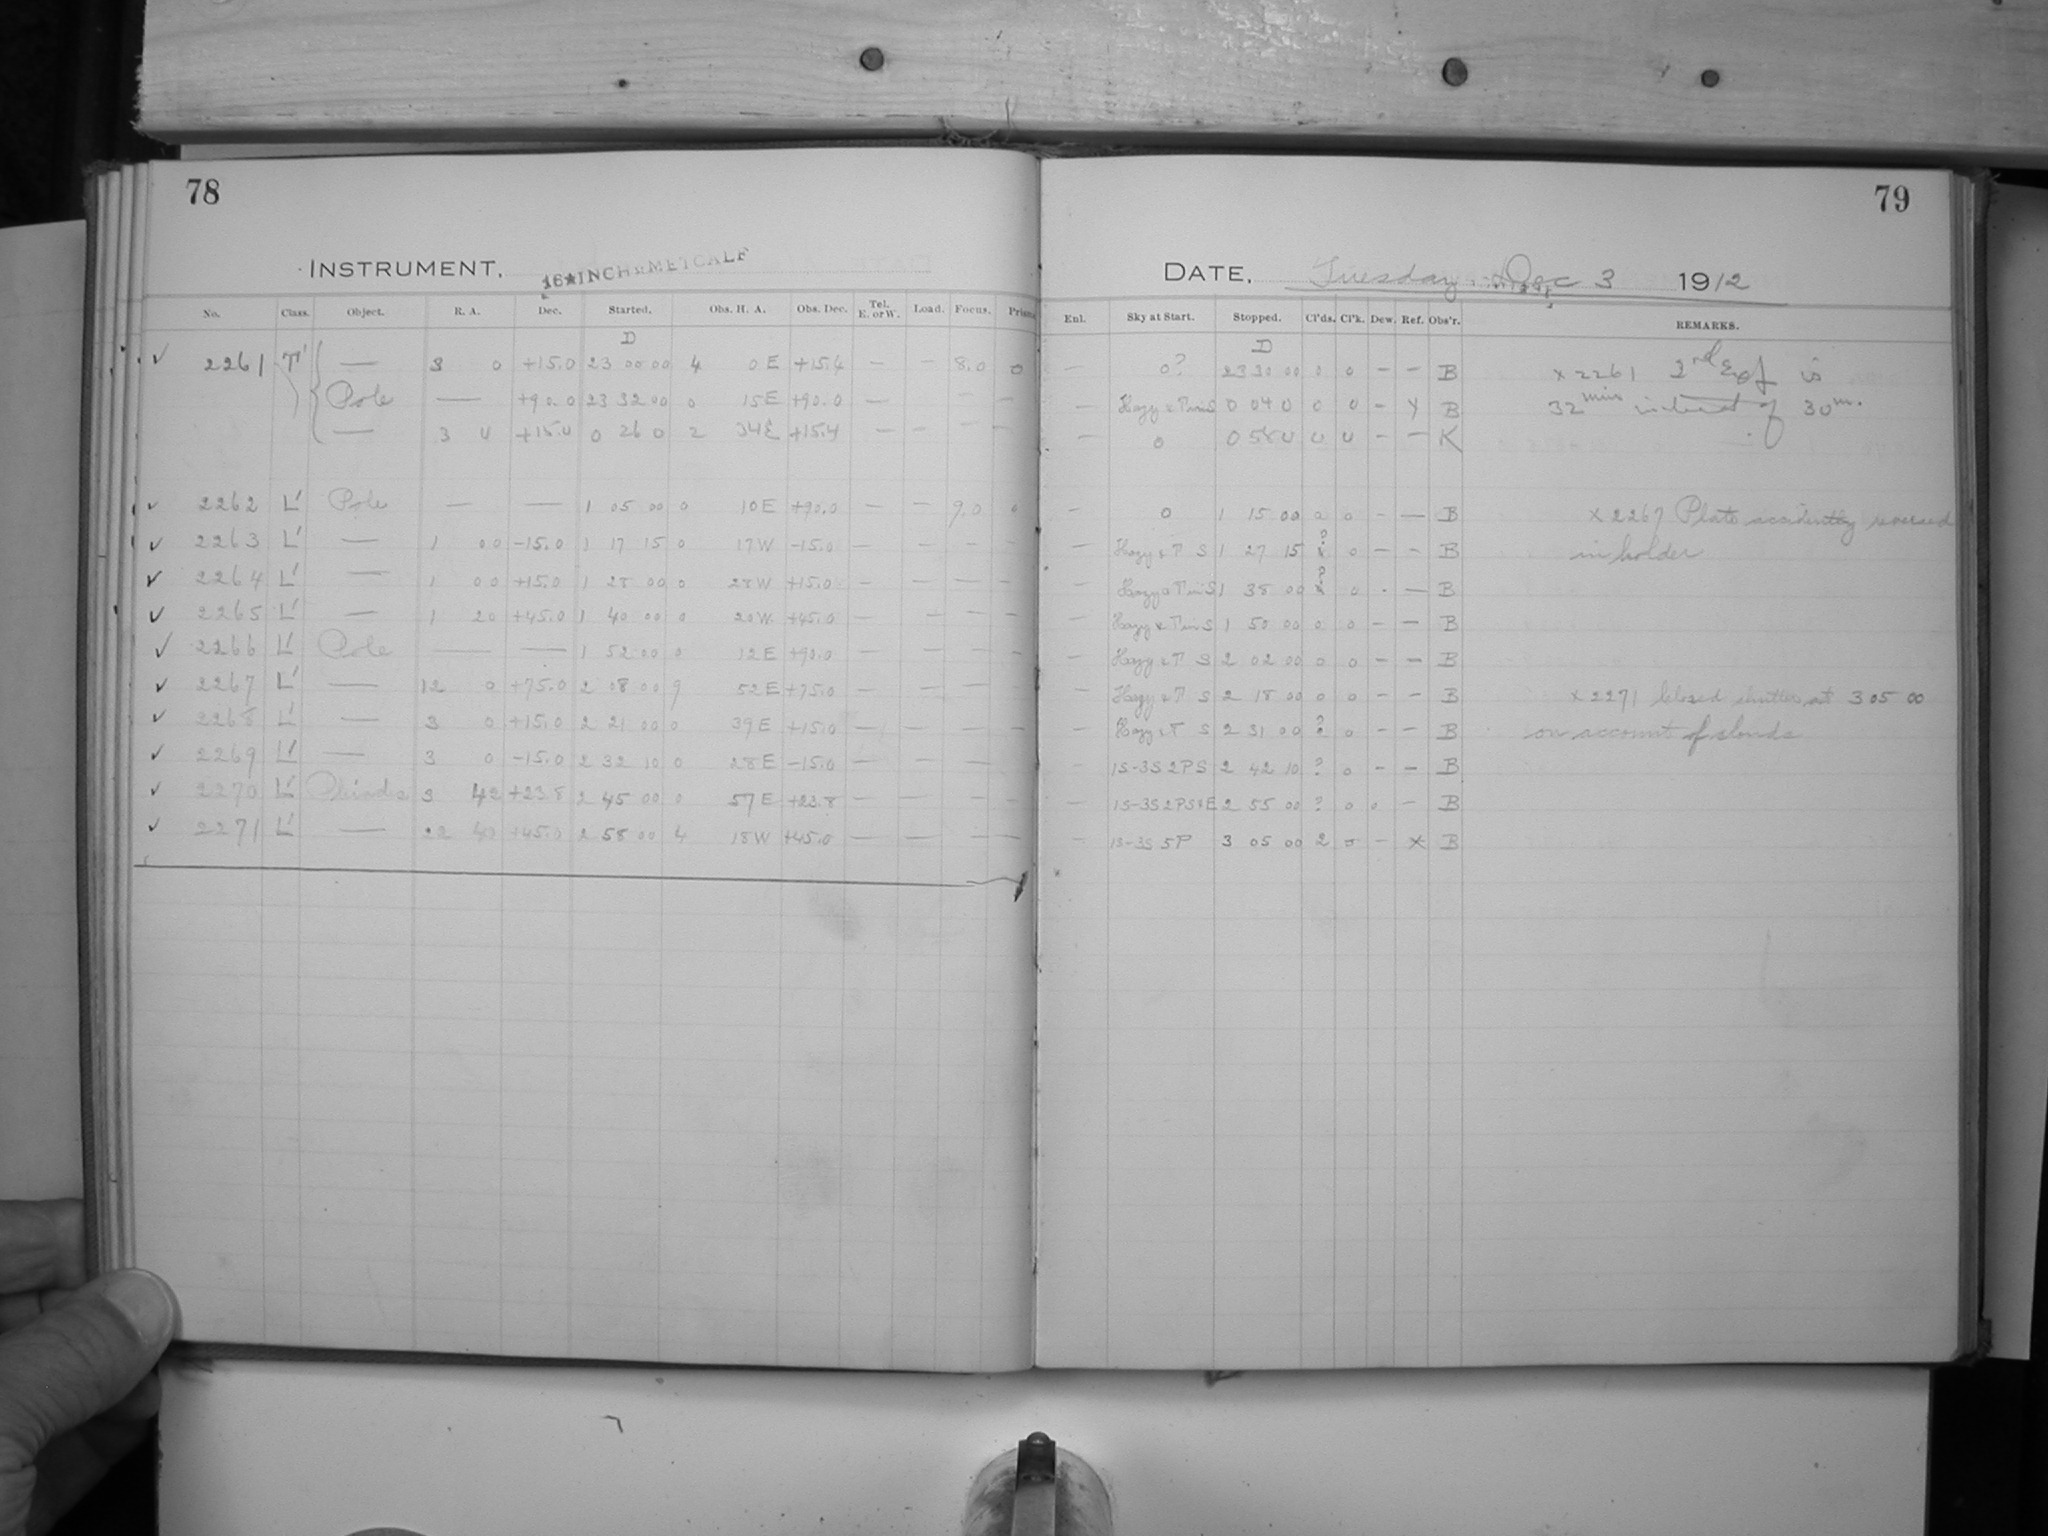 78
INSTRUMENT. 16★INCH METCALF
No. Class. Object. R. A. Dec. Started. Obs. H. A. Obs. Dec. Tel. E. or W. Load. Focus. Prism
D
2261 — 3 0 +15.0 23 00 00 4 0 E +15.4 — — 8.0 0
Pole — +90.0 23 32 00 0 15 E +90.0 — — —
— 3 0 +15.0 0 26 0 2 34 E +15.4 — — — —
2262 L' Pole — — 1 05 00 0 10 E +90.0 — — 9.0 0
2263 L' — 1 00 -15.0 1 17 15 0 17 W -15.0 — — — —
2264 L' — 1 00 +15.0 1 28 00 0 28 W +15.0 — — — —
2265 L' — 1 20 +45.0 1 40 00 0 20 W +45.0 — — — —
2266 L' Pole — — 1 52 00 0 12 E +90.0 — — — —
2267 L' — 12 0 +75.0 2 08 00 9 52 E +75.0 — — — —
2268 L' — 3 0 +15.0 2 21 00 0 39 E +15.0 — — — —
2269 L' — 3 0 -15.0 2 32 10 0 28 E -15.0 — — —
2270 L' 3 42 +23.8 2 45 00 0 57 E +23.8 — — — —
2271 L' — 22 40 +45.0 2 58 00 4 18 W +45.0 — — — —
79
DATE, Tuesday, Dec 3 1912
Enl. Sky at Start. Stopped. Cl'ds. Cl'k. Dew. Ref. Obs'r. REMARKS.
D
— 0? 23 30 00 0 0 — — B x 2261 2nd Exp is
— 0 04 0 0 0 — Y B 32 mins instead of 30m.
— 0 0 58 0 0 0 — — K
— 0 1 15 00 0 0 — — B x 2267 Plate accidently reversed
— Hazy & T S 1 27 15 ? x 0 — — B in holder
— 1 38 00 ? x 0 - — B
— 1 50 00 0 0 — — B
— Hazy & T S 2 02 00 0 0 — — B
— Hazy & T S 2 18 00 0 0 — — B x 2271 closed shutter at 3 05 00
— Hazy & T S 2 31 00 ? 0 — — B on account of clouds
— 1S-3S 2PS 2 42 10 ? 0 — — B
— 1S-3S 2PS&E 2 55 00 ? 0 0 — B
— 1S-3S 5P 3 05 00 2 0 — x B